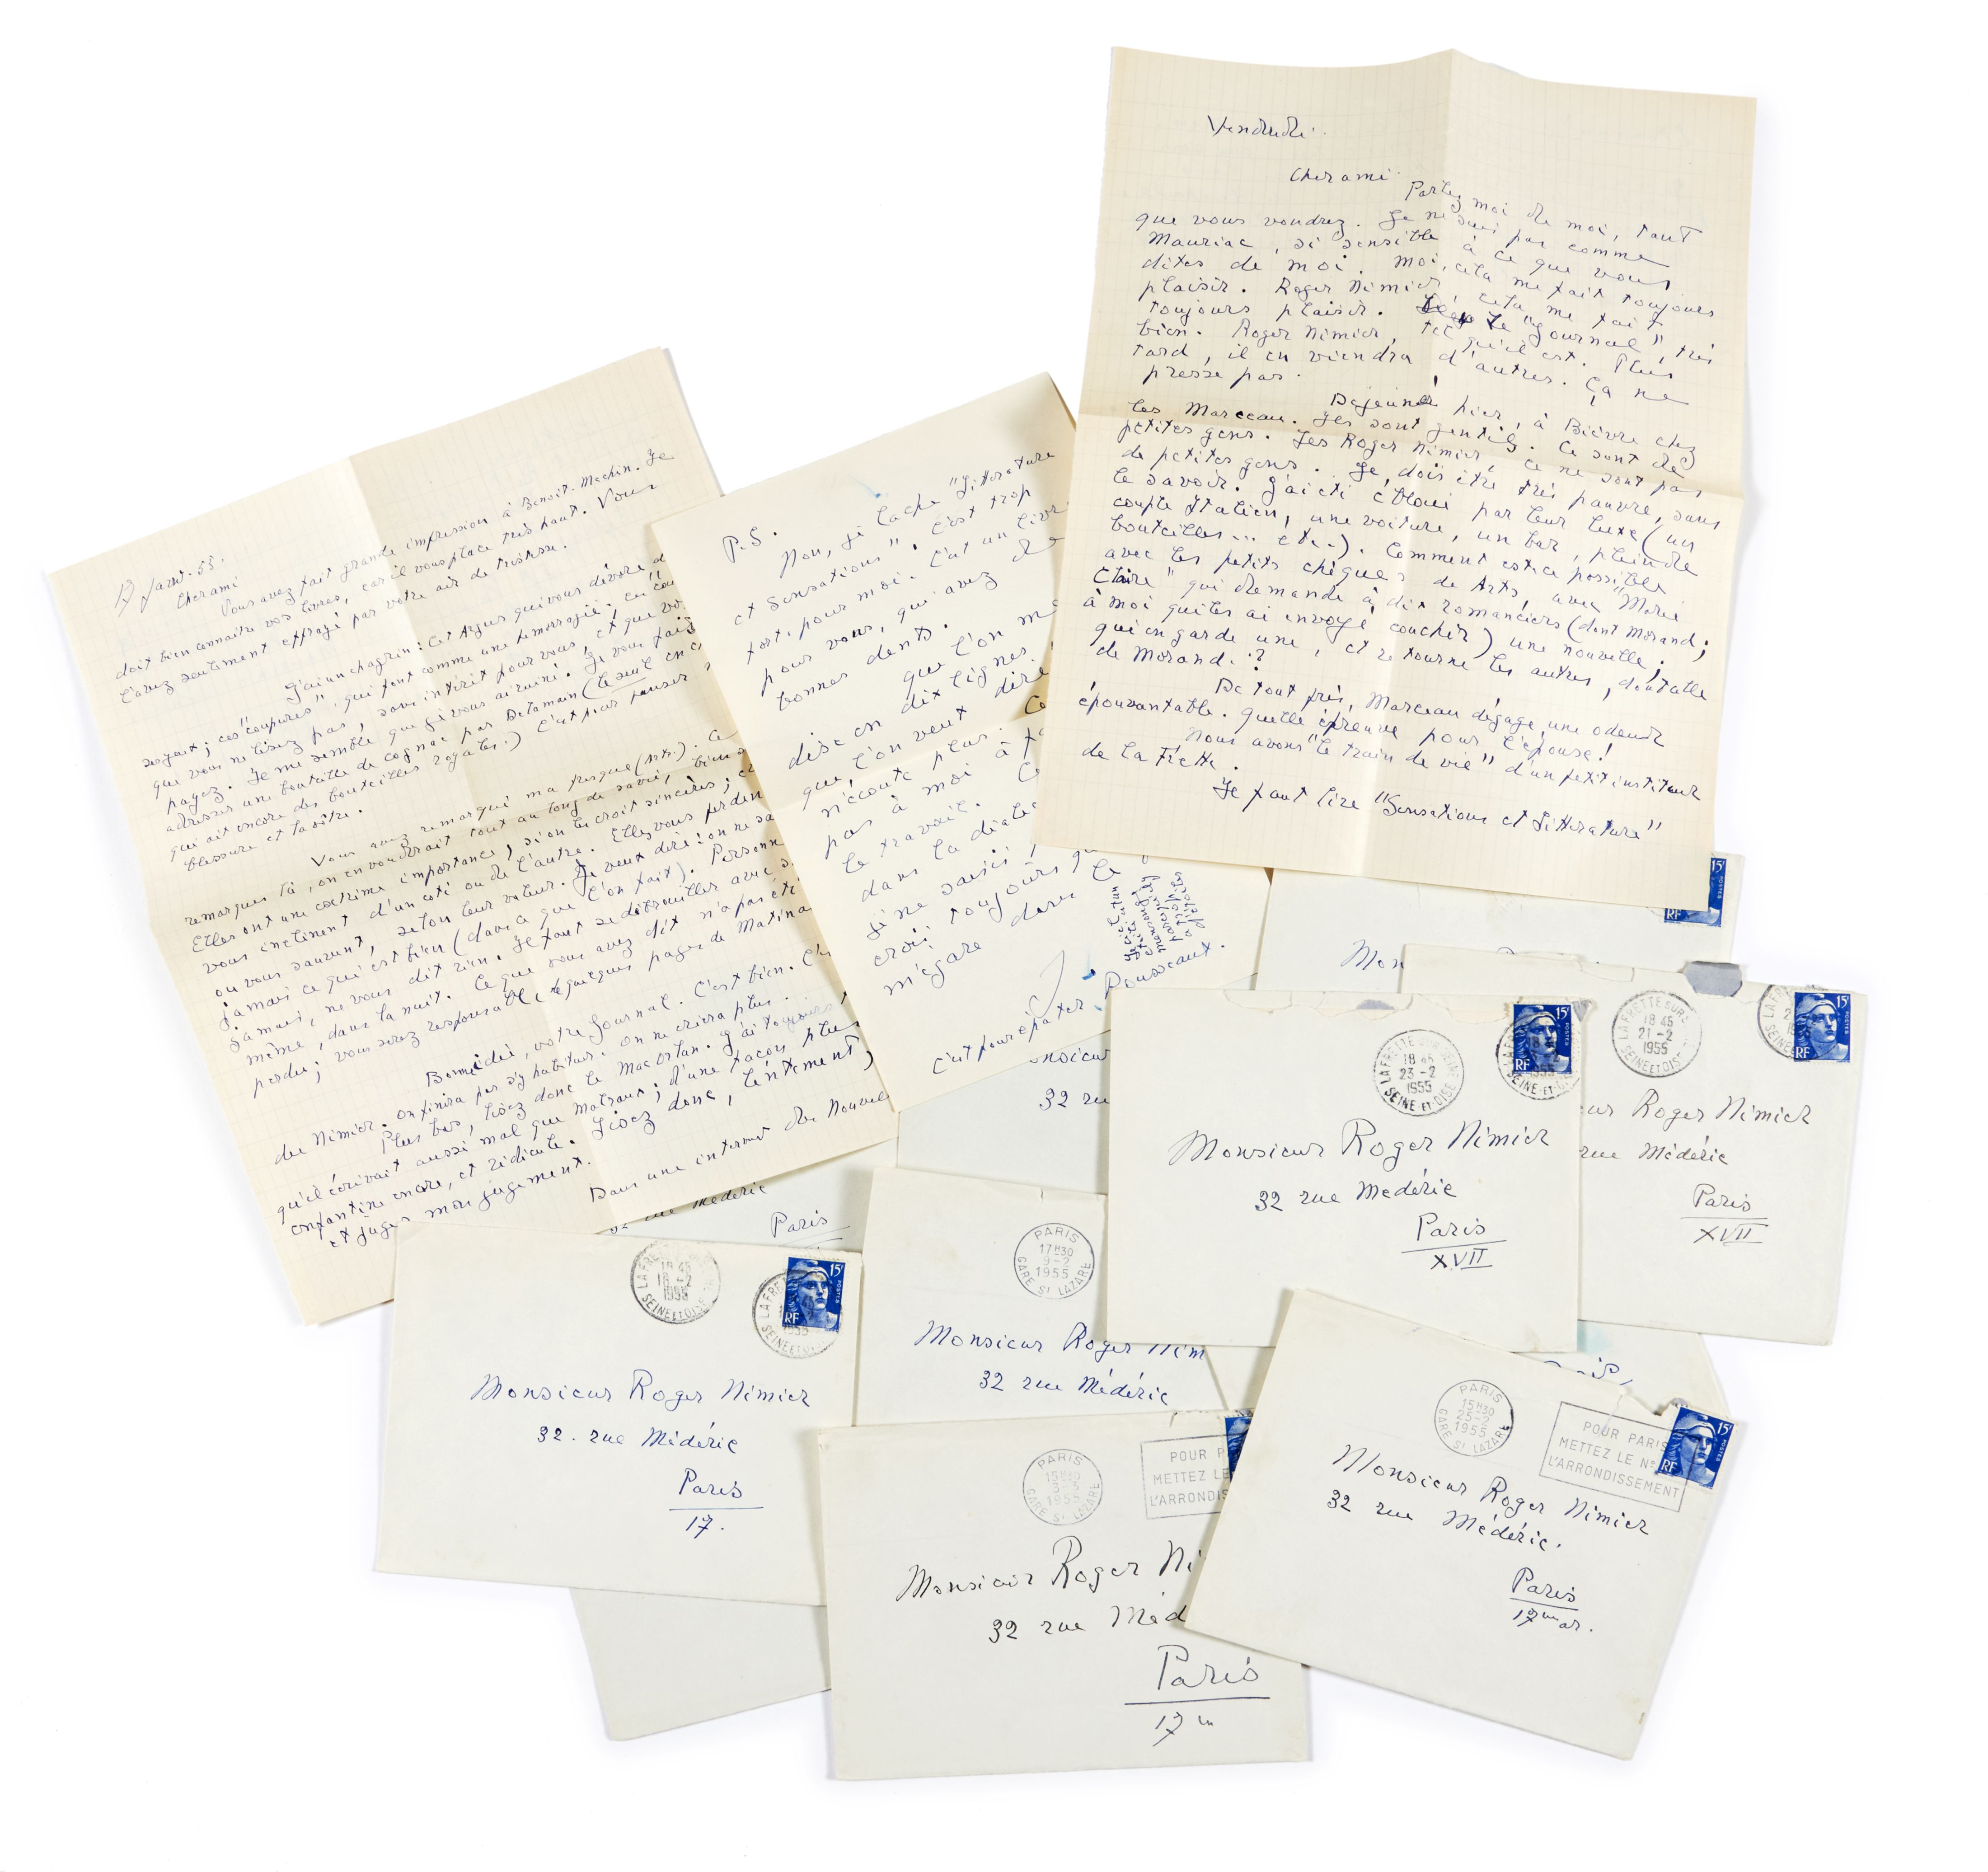 19 Janv. 55.
Cher ami
Vous avez fait grande impression à Benoit-Mechin. Je
doit bien connaître vos livres, car il vous place très haut. Vous
l'avez seulement effrayé par votre air de tristesse.
J'ai un chagrin: cet Argus qui vous dévore
argent; ces "coupures" qui font comme une hémorragie
que vous ne lisez pas, sans intérêt pour vous, et que
payez. Je me semble que je vous ai ruiné. Je vous fais
adresser une bouteille de cognac par Delamain (le seul en
qui ait encore des bouteilles royales.) C'est pour panser
blessure et la vôtre.
Vous avez remarqué ma presque (Arts).
remarques là, on en voudrait tout au long de sa vie, bien
Elles ont une extrême importance, si on les croit sincères;
vous inclinent d'un côté ou de l'autre. Elles vous perdent
ou vous sauvent, selon leur valeur. Je veux dire: on ne sa
jamais ce qui est bien (dans ce que l'on fait). Personne
jamais, ne vous dit rien. Il faut se débrouiller avec
même, dans la nuit. Ce que vous avez dit n'a pas été
perdu; vous serez responsable de quelques pages de Matina
Bonne idée, votre Journal. C'est bien.
du Nimier. On finira par s'y habituer. On ne criera plus.
Plus bas, lisez donc le Mac Orlan. J'ai toujours
qu'il écrivait aussi mal que Malraux; d'une façon plus
enfantine encore, et ridicule. Lisez donc, lentement,
et juger mon jugement.
Dans une interview des Nouvel
P.S.
Non, je lâche "Littérature
et Sensations". C'est trop
fort pour moi. C'est un livre
pour vous, qui avez de
bonnes dents.
que l'on me
dise en dix lignes,
que l'on veut dire
n'écoute plus.
pas à moi à fa
le travail.
dans la dialec
je ne saisis
crois toujours
m'égare dans
C'est pour épater Rousseaux.
Vendredi.
Cher ami
Parlez moi de moi, tant
que vous voudrez. Je ne suis pas comme
Mauriac, si sensible à ce que vous
dites de moi. Moi, cela me fait toujours
plaisir. Roger Nimier, cela me fait
toujours plaisir. Le "Journal", très
bien. Roger Nimier, tel qu'il est. Plus
tard, il en viendra d'autres. Ça ne
presse pas.
Déjeuné hier, à Bièvre chez
les Marceau. Ils sont gentils. Ce sont de
petites gens. Les Roger Nimier, ce ne sont pas
de petites gens. Je dois être très pauvre, sans
le savoir. J'ai été ébloui par leur luxe (un
couple Italien, une voiture, un bar, plein de
bouteilles... etc..). Comment est-ce possible
avec les petits chèques de Arts, avec "Marie
Claire" qui demande à dix romanciers (dont Morand;
à moi qui les ai envoyé coucher) une nouvelle;
qui en garde une, et retourne les autres, dont celle
de Morand.?
De tout près, Marceau dégage une odeur
épouvantable. Quelle épreuve pour l'épouse!
Nous avons "le train de vie" d'un petit instituteur
de la Frette.
Il faut lire "Sensations et Littérature"
Mon
onsieur
32 ru
32 rue Médéric
Paris
LA FRETTE SUR SEINE
18 45
23 -2
1955
SEINE-ET-OISE
15F
POSTES
RF
Monsieur Roger Nimier
32 rue Médéric
Paris
XVII
LA FRETTE SUR S
18 45
21 -2
1955
SEINE ET OISE
15F
RF
eur Roger Nimier
rue Médéric
Paris
XVII
LA FRE
18 45
SEINE ET OISE
15F
POSTES
RF
Monsieur Roger Nimier
32. rue Médéric
Paris
17.
PARIS
17H30
9-2
1955
GARE ST LAZARE
Monsieur Roger Nim
32 rue Médéric
PARIS
15H30
1955
GARE ST LAZARE
POUR P
METTEZ LE
L'ARRONDIS
Monsieur Roger Ni
32 rue Méd
Paris
17
PARIS
15H30
25-2
1955
GARE ST LAZARE
POUR PARIS
METTEZ LE N°
L'ARRONDISSEMENT
15F
POSTES
RF
Monsieur Roger Nimier
32 rue Médéric.
Paris
17me ar.